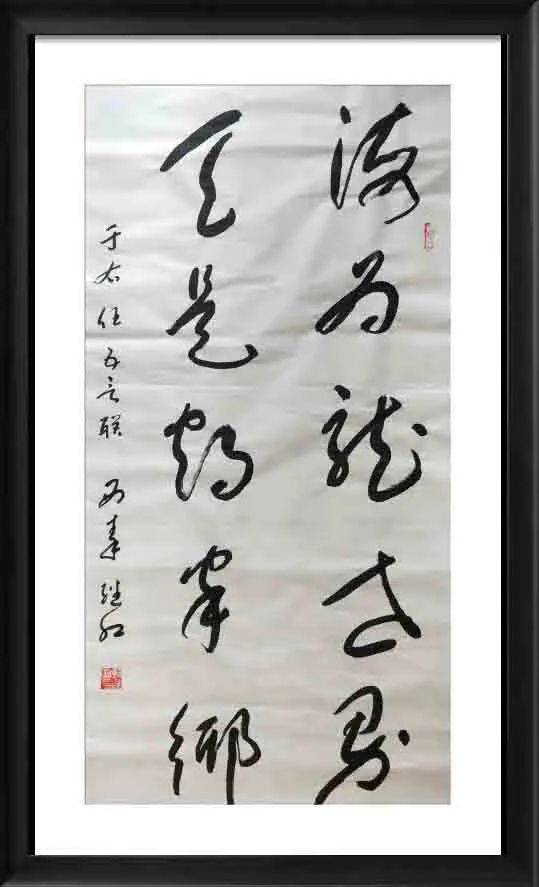 海为龙世界
天是鹤家乡
于右任五言联 西秦继红